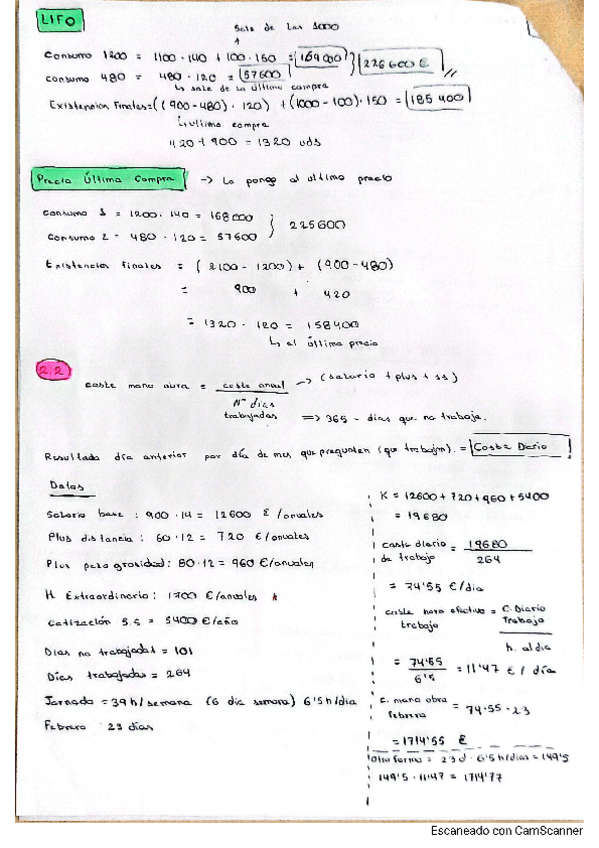 LIFO
Sale de las 1000
Consumo 1200 = 1100 · 140 + 100 · 150 = 169000 } 226600 €
Consumo 480 = 480 · 120 = 57600
↳ sale de la última compra
Existencias Finales = ((900-480) · 120) + (1000-100) · 150 = 185400
↳ última compra
420 + 900 = 1320 uds
Precio Última Compra → Lo pongo al ultimo precio
Consumo 1 = 1200 · 140 = 168000 } 225600
Consumo 2 = 480 · 120 = 57600
Existencias finales = (2100 - 1200) + (900-480)
= 900 + 420
= 1320 · 120 = 158400
↳ al último precio
2.2
Coste mano obra = coste anual → (salario + plus + ss)
Nº días trabajados => 365 - días que no trabaja.
Resultado día anterior por día de mes que pregunten (que trabajen). = Coste Diario
Datos
Salario base : 900 · 14 = 12600 €/anuales
Plus distancia : 60 · 12 = 720 €/anuales
Plus peligrosidad: 80 · 12 = 960 €/anuales
H. Extraordinario: 1700 €/anuales *
Cotización S.S = 5400 €/año
Días no trabajados = 101
Días trabajados = 264
Jornada = 39 h/semana (6 día semana) 6'5 h/día
Febrero 23 días
K = 12600 + 720 + 960 + 5400
= 19680
coste diario de trabajo = 19680 / 264
= 74'55 €/día
coste hora efectiva trabajo = C. Diario Trabajo / h. al dia
= 74'55 / 6'5 = 11'47 € / día
c. mano obra febrero = 74.55 · 23
= 1714'55 €
Otra forma = 23 d · 6'5 h/días = 149'5
149'5 · 11'47 = 1714'77
Escaneado con CamScanner